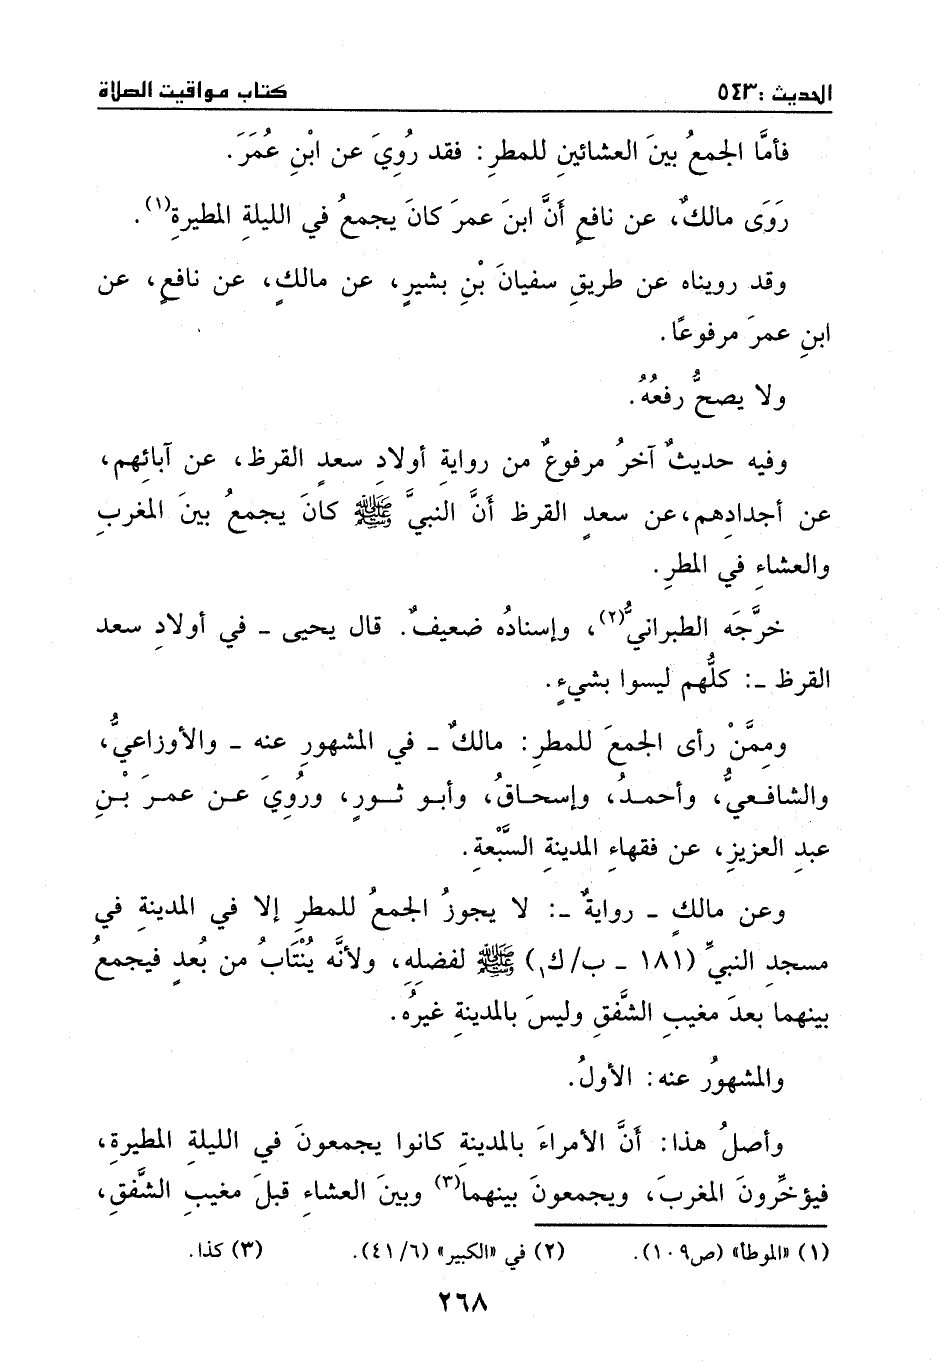 الحديث : ٥٤٣ كتاب مواقيت الصلاة
فأمَّا الجمعُ بينَ العشائينِ للمطرِ: فقد رُوِيَ عن ابْنِ عُمَرَ.
رَوَى مالكٌ، عن نافعٍ أَنَّ ابنَ عمرَ كانَ يجمعُ في الليلةِ المطيرةِ(١).
وقد رويناه عن طريقِ سفيانَ بْنِ بشيرٍ، عن مالكٍ، عن نافعٍ، عن
ابنِ عمرَ مرفوعًا.
ولا يصحُّ رفعُهُ.
وفيه حديثٌ آخرُ مرفوعٌ من روايةِ أولادِ سعدٍ القرظ، عن آبائِهم،
عن أجدادِهم،عن سعدٍ القرظ أَنَّ النبيَّ ﷺ كانَ يجمعُ بينَ المغربِ
والعشاءِ في المطرِ.
خرَّجَه الطبرانيُّ(٢)، وإسنادُه ضعيفٌ. قال يحيى - في أولادِ سعد
القرظ -: كلُّهم ليسوا بشيءٍ.
وممَّنْ رأى الجمعَ للمطرِ: مالكٌ - في المشهورِ عنه - والأوزاعيُّ،
والشافعيُّ، وأحمدُ، وإسحاقُ، وأبو ثورٍ، ورُوِيَ عن عمرَ بْنِ
عبدِ العزيزِ، عن فقهاءِ المدينةِ السَّبْعةِ.
وعن مالكٍ - روايةٌ -: لا يجوزُ الجمعُ للمطرِ إلا في المدينةِ في
مسجدِ النبيِّ (١٨١ - ب/ك١) ﷺ لفضلِهِ، ولأنَّه يُنْتَابُ من بُعدٍ فيجمعُ
بينهما بعدَ مغيبِ الشَّفقِ وليسَ بالمدينةِ غيرُه.
والمشهورُ عنه: الأولُ.
وأصلُ هذا: أَنَّ الأمراءَ بالمدينةِ كانوا يجمعونَ في الليلةِ المطيرةِ،
فيؤخِّرونَ المغربَ، ويجمعونَ بينهما(٣) وبينَ العشاءِ قبلَ مغيبِ الشَّفقِ،
(١) «الموطأ» (ص١٠٩). (٢) في «الكبير» (٤١/٦). (٣) كذا.
٢٦٨